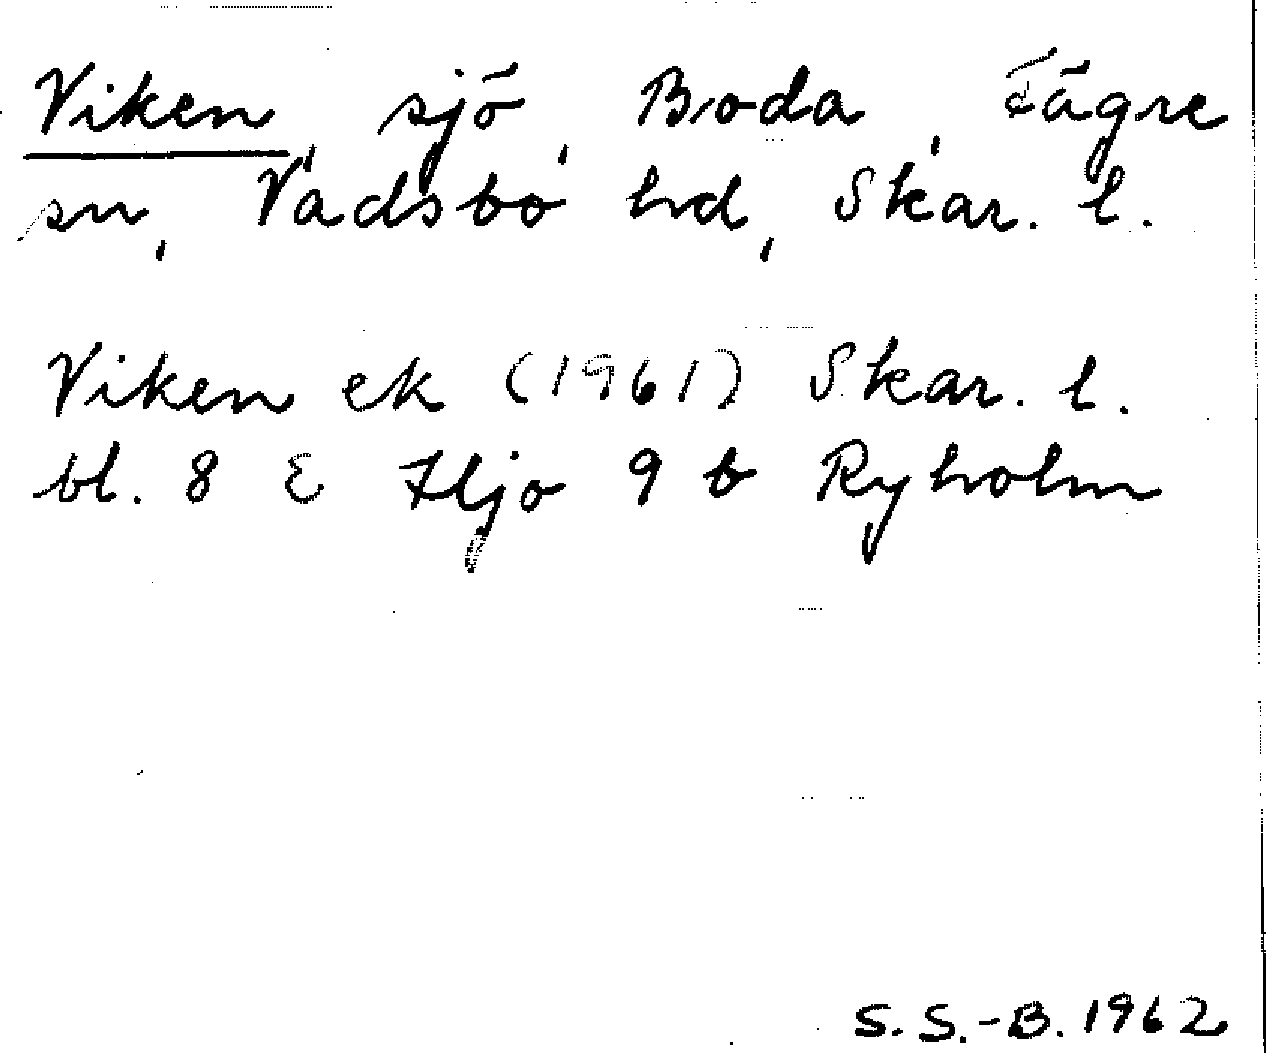 Viken, sjö, Boda, Fägre
sn, Vadsbo hd, Skar. l.
Viken ek (1961) Skar. l.
bl. 8 & Hjo 9 b Ryholm
S. S.-B. 1962